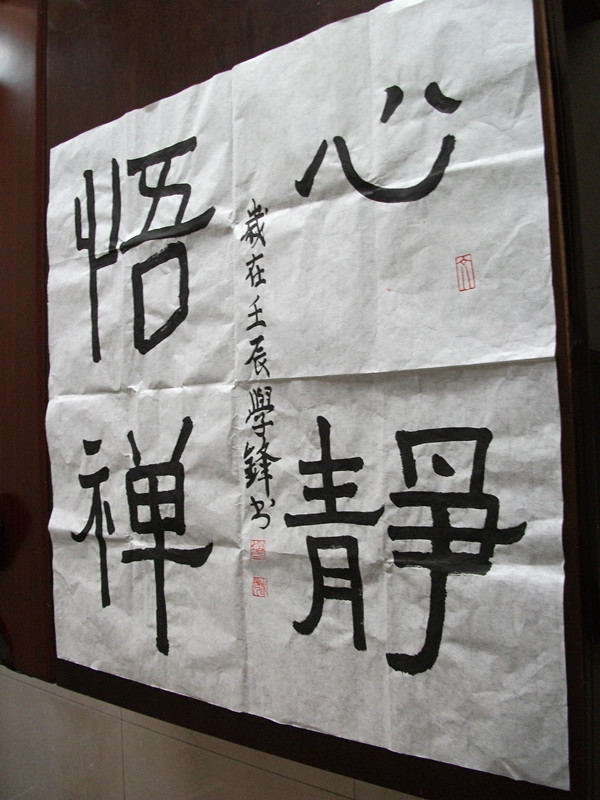 心靜
悟禅
歲在壬辰學鋒书